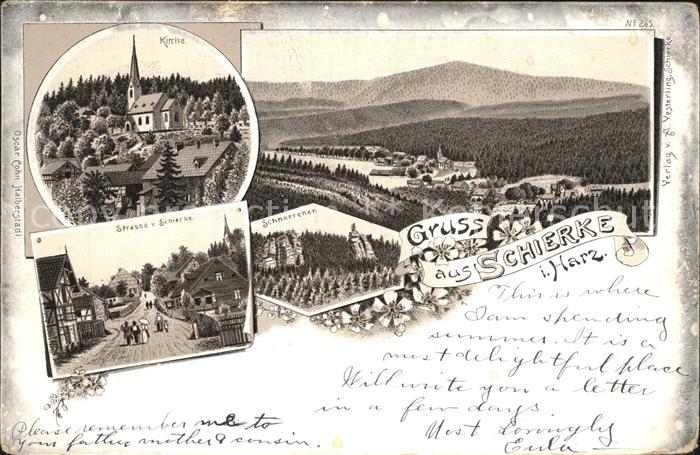 No 265.
Kirche.
Verlag v. A. Yesterling, Schierke
Oscar Cohn, Halberstadt
Strasse v. Schierke.
Schnarrcher.
Gruss
aus SCHIERKE
i. Harz.
This is where
I am spending
summer. It is a
most delightful place
Will write you a letter
in a few days.
Most Lovingly
Eula
Please remember me to
your father mother & cousin.